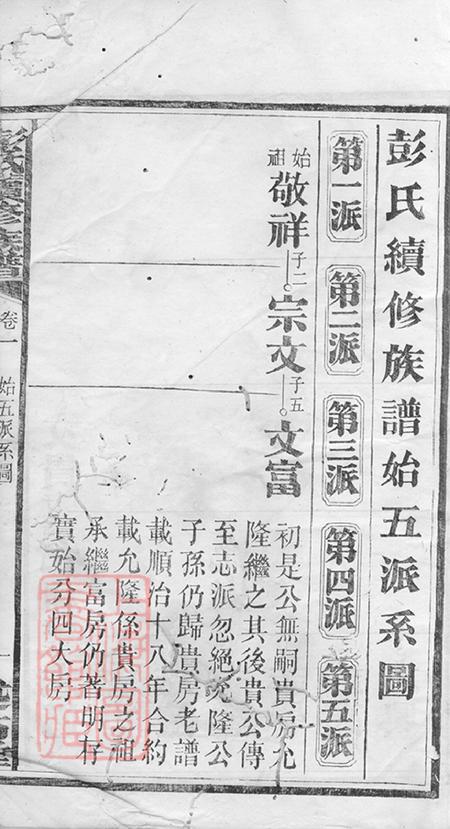 彭氏續修族譜始五派系圖
第一派
第二派
第三派
第四派
第五派
始祖敬祥
子二
宗文
子五
文富
初是公無嗣貴房允
隆繼之其後貴公傳
至志派忽絕允隆公
子孫仍歸貴房老譜
載順治十八年合約
載允隆係貴房之祖
承繼富房仍著明存
實始分四大房
彭氏續修族譜
卷一
始五派系圖
一